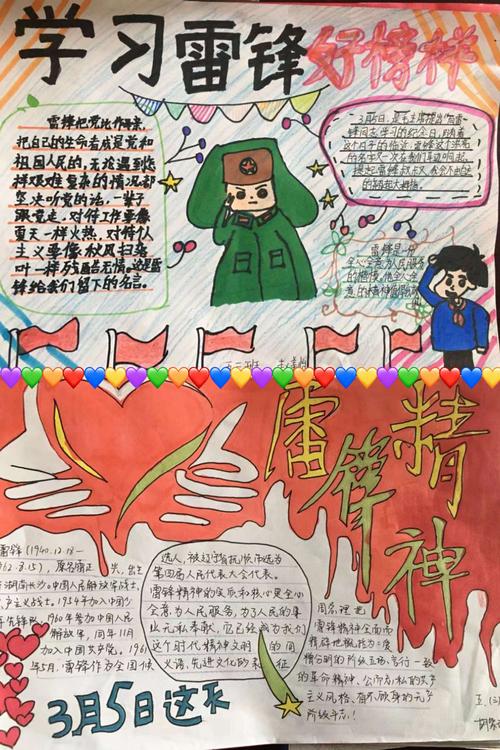 学习雷锋好榜样
雷锋把党比作母亲,
把自己的生命看成是党和
祖国人民的,无论遇到怎
样艰难复杂的情况都
坚决听党的话,一辈子
跟党走,对待工作要像
夏天一样火热,对待个人
主义要像秋风扫落
叶一样残酷无情。这是雷
锋给我们留下的名言。
3月5日,是毛主席提出向雷
锋同志学习的纪念日,
雷锋是一
全心全意为人民服务
的楷模,
五三班
雷锋精神
雷锋(1940.12.18—
1962.8.15),原名雷正兴,出生
湖南长沙。中国人民解放军战士,
共产主义战士。1954年加入中国少
年先锋队,1960年参加中国人民
解放军,同年11月
加入中国共产党。1961
年5月,雷锋作为全团候
选人,被辽宁省抚顺市选为
第四届人民代表大会代表。
雷锋精神的实质和核心是全心
全意为人民服务,为了人民的事
业无私奉献,它已经成为我们
这个时代精神文明的同
义语、先进文化的表征
周恩来把
雷锋精神全面而
精辟地概括为“憎
爱分明的阶级立场、言行一致
的革命精神、公而忘私的共产
主义风格、奋不顾身的无产
阶级斗志”
3月5日这天